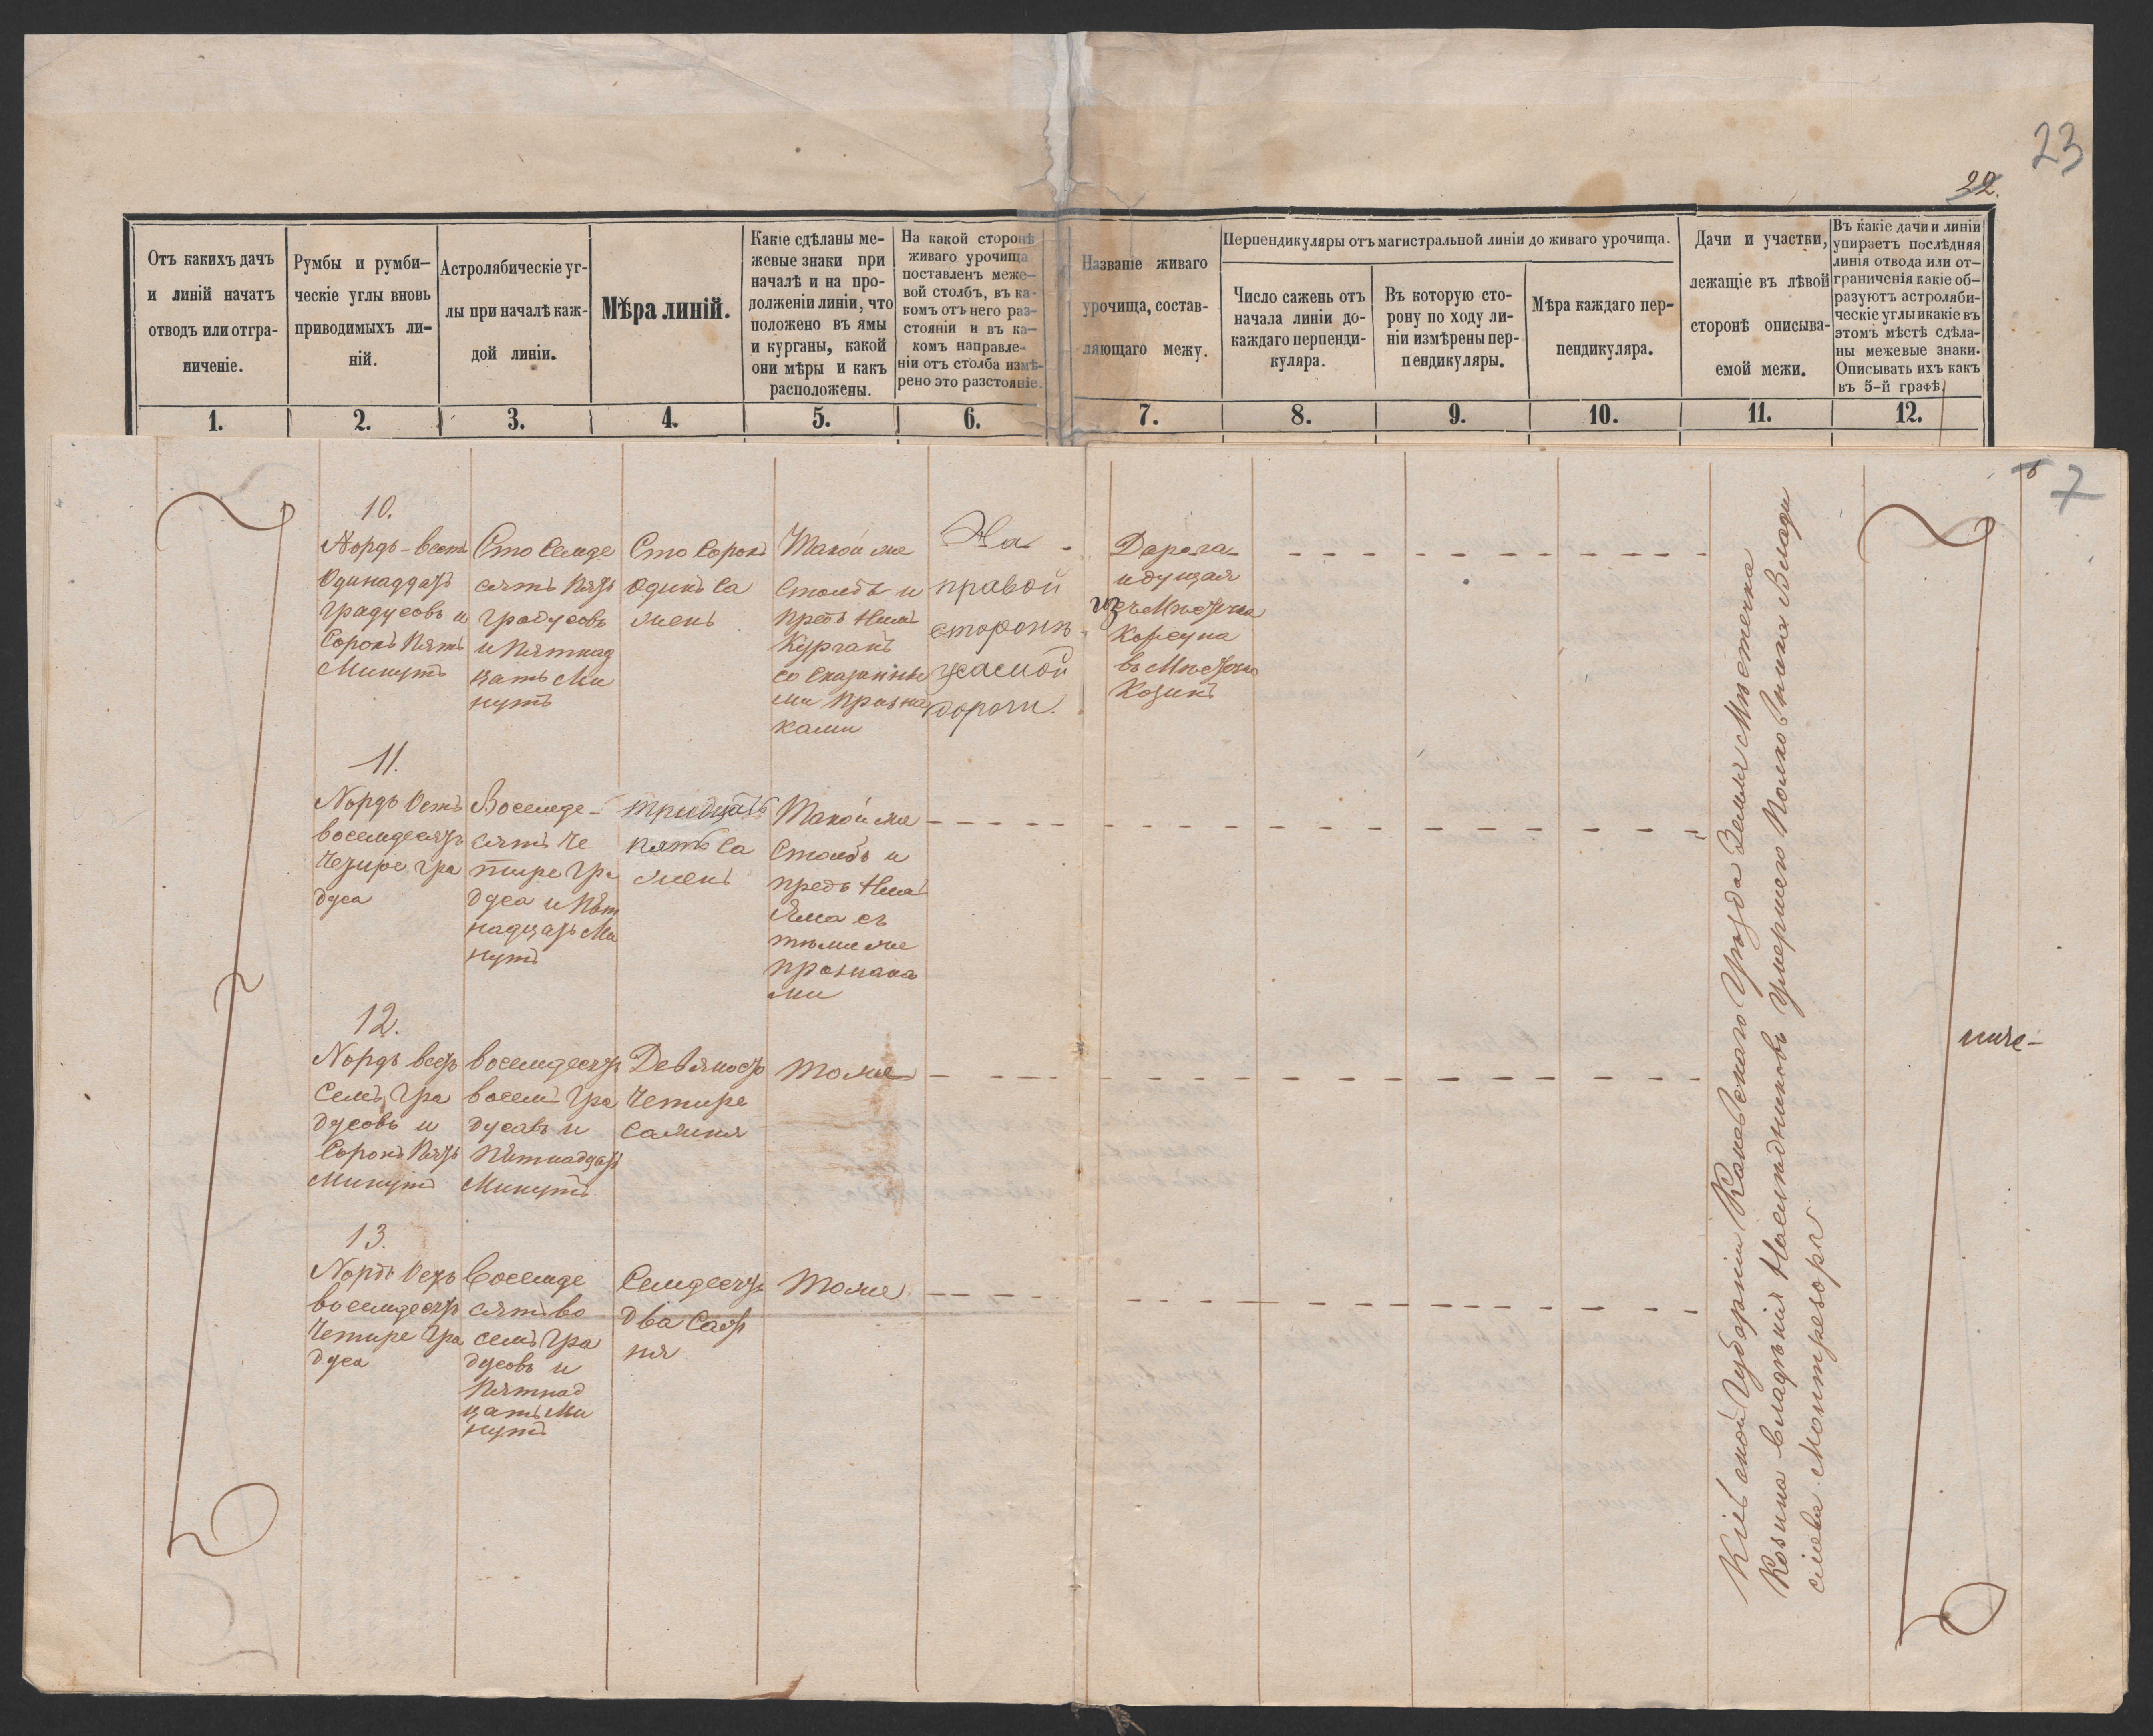 23
22.
Отъ какихъ дачъ
и линій начатъ
отводъ или отгра-
ниченіе.
Румбы и румби-
ческіе углы вновь
приводимыхъ ли-
ній.
Астролябическіе уг-
лы при началѣ каж-
дой линіи.
Мѣра линій.
Какіе сдѣланы ме-
жевые знаки при
началѣ и на про-
долженіи линіи, что
положено въ ямы
и курганы, какой
они мѣры и какъ
расположены.
На какой сторонѣ
живаго урочища
поставленъ меже-
вой столбъ, въ ка-
комъ отъ него раз-
стояніи и въ ка-
комъ направле-
ніи отъ столба измѣ-
рено это разстояніе.
Названіе живаго
урочища, состав-
ляющаго межу.
Перпендикуляры отъ магистральной линіи до живаго урочища.
Число сажень отъ
начала линіи до-
каждаго перпенди-
куляра.
Въ которую сто-
рону по ходу ли-
ніи измѣрены пер-
пендикуляры.
Мѣра каждаго пер-
пендикуляра.
Дачи и участки,
лежащіе въ лѣвой
сторонѣ описыва-
емой межи.
Въ какіе дачи и линіи
упираетъ послѣдняя
линія отвода или от-
граниченія какіе об-
разуютъ астроляби-
ческіе углы и какіе въ
этомъ мѣстѣ сдѣла-
ны межевые знаки.
Описывать ихъ какъ
въ 5-й графѣ.
1. 2. 3. 4. 5. 6. 7. 8. 9. 10. 11. 12.
7
10.
Нордъ-вестъ
Одинаддать
градусовъ и
Сорокъ Пять
Минутъ
Сто Семде
сятъ Пять
градусовъ
и Пятнад
цать Ми
нутъ
Сто Сорокъ
Одинъ Са
жень
Такой же
Столбъ и
предъ Нимъ
Курганъ
со Сказанны
ми Призна
ками
На
правой
сторонѣ
у самой
дороги.
Дарога
идущая
изъ Мѣстечка
Корсуна
въ Мѣстечко
Козинъ
11.
Нордъ Остъ
восемдесять
Четыре гра
дуса
Восемде-
сятъ Че
тире Гра
дуса и Пят
надцать Ми
нутъ
тридцать
пять Са
жень
Такой же
Столбъ и
предъ Нимъ
Яма съ
тѣми же
признака
ми
12.
Нордъ вестъ
Семь Гра
дусовъ и
Сорокъ Пять
Минутъ
восемдесять
восемъ Гра
дусовъ и
Пятнадцать
Минутъ
Девяносто
Четире
Сажня
тоже
13.
Нордъ Остъ
восемдесять
Четире Гра
дуса
Восемде
сятъ во
семь Гра
дусовъ и
Пятнад
цать Ми
нутъ
Семдесять
два Саж
ня
тоже
Кіевской Губерніи Каневского Уѣзда Земля Мѣстечка
Козина владѣнія Наслѣдниковъ Умершего Полковника Влади
слава Монтрезора